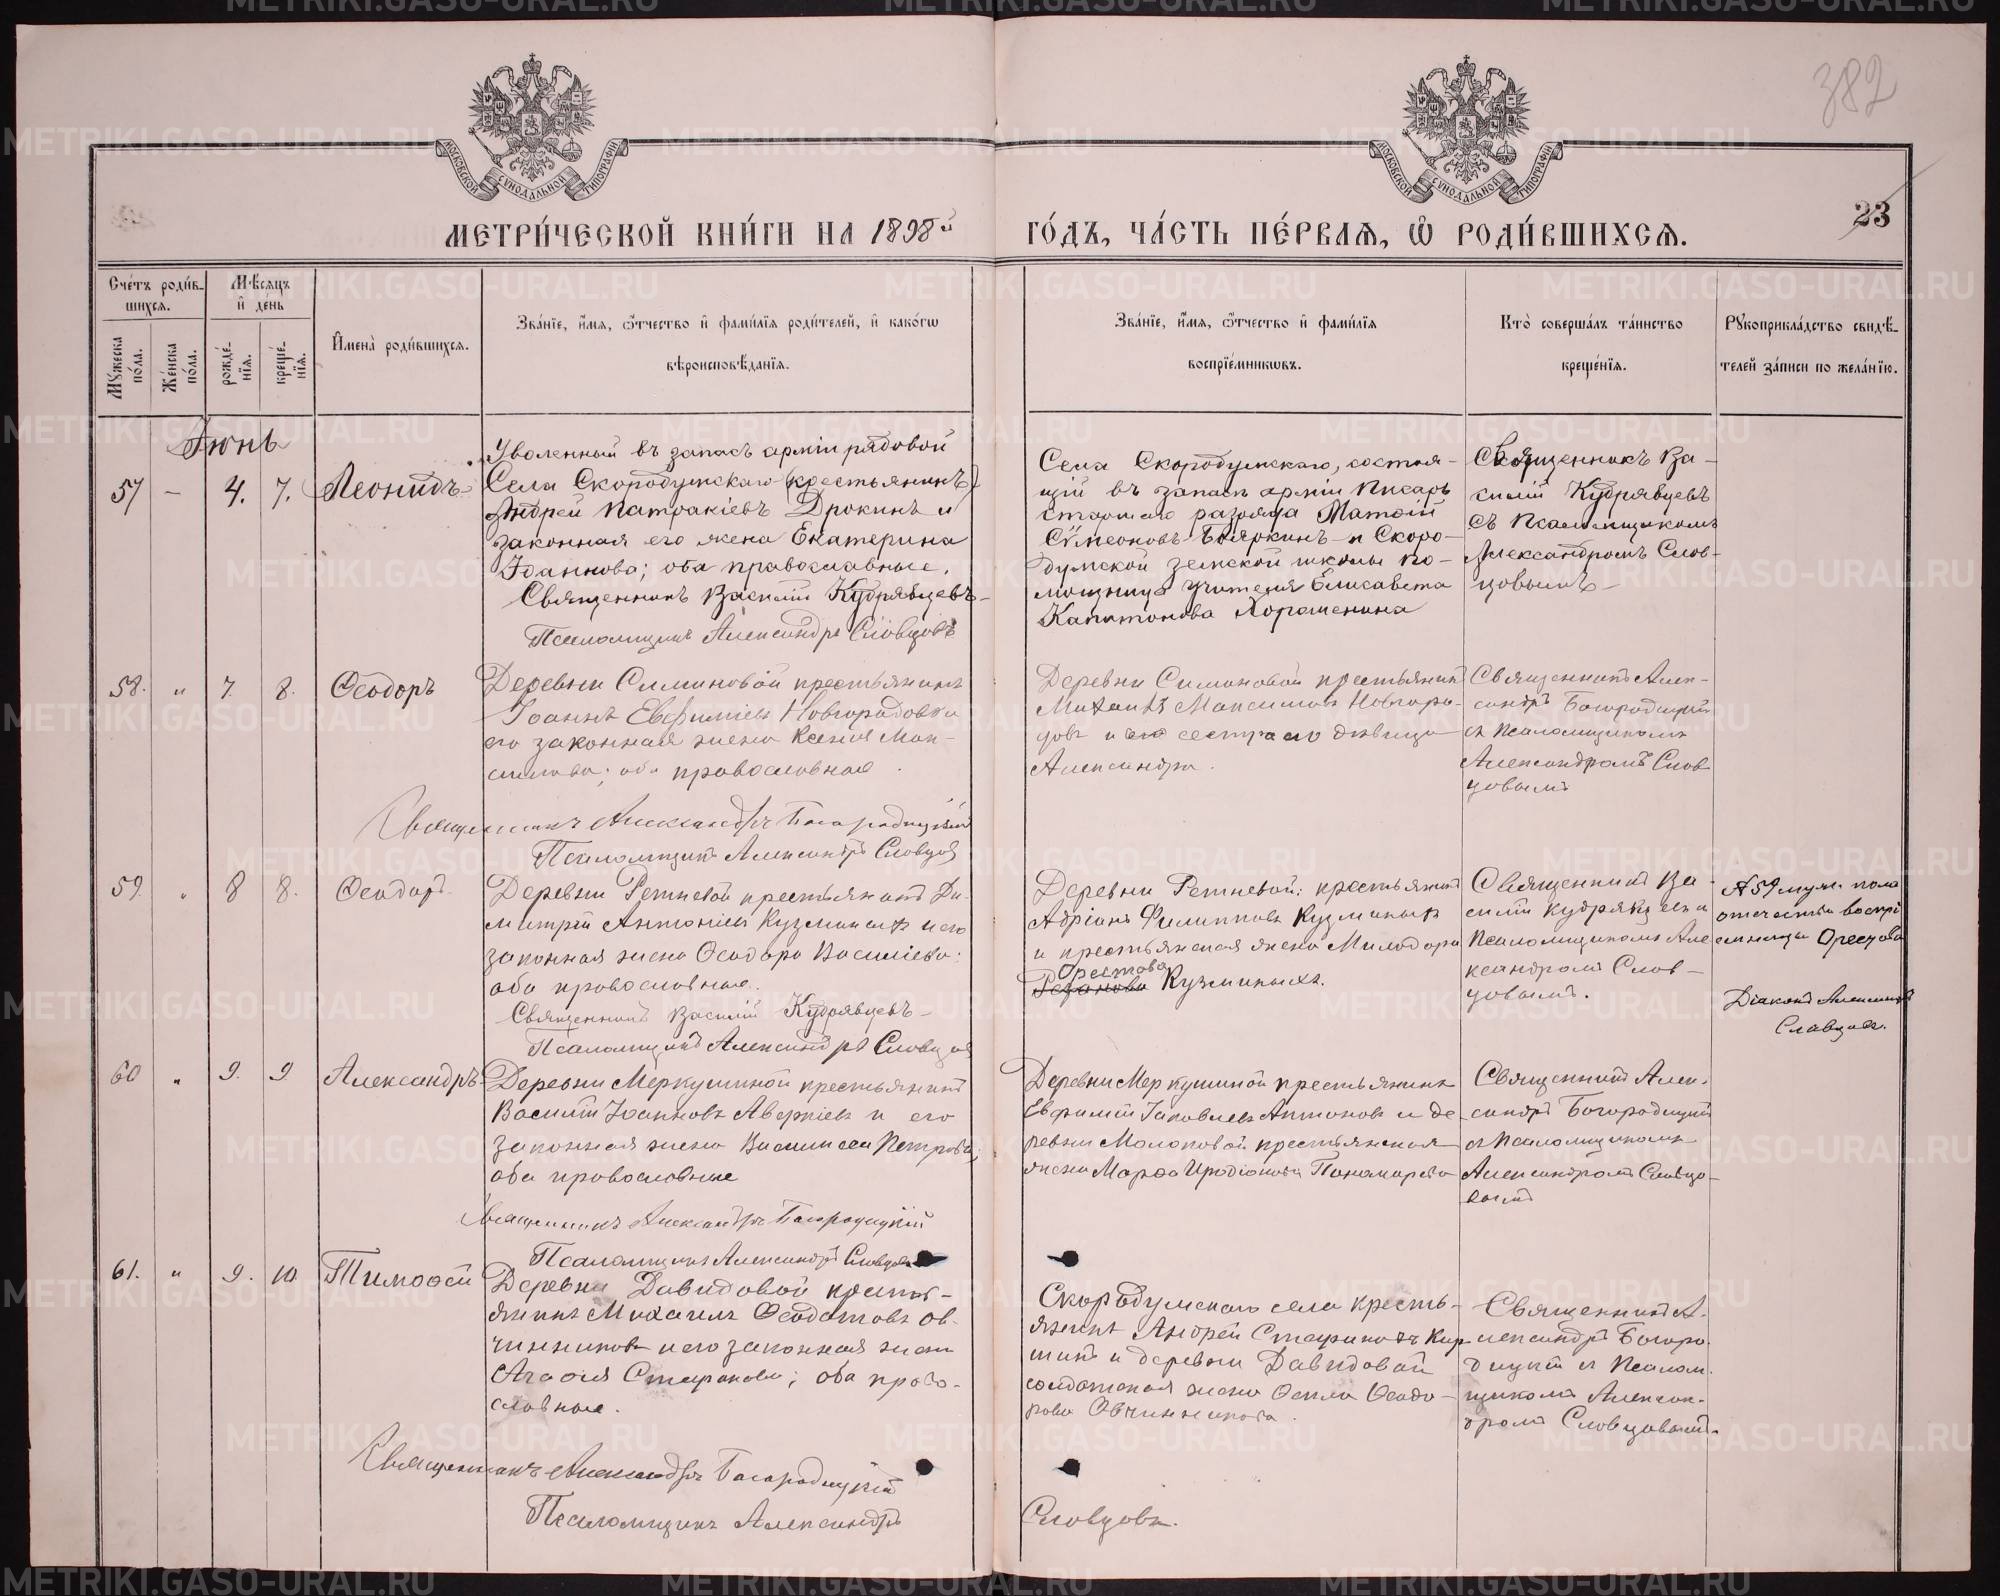 382
23
МОСКОВСКОЙ СѴНОДАЛЬНОЙ ТИПОГРАФІИ
МОСКОВСКОЙ СѴНОДАЛЬНОЙ ТИПОГРАФІИ
МЕТРИ́ЧЕСКОЙ КНИ́ГИ НА 1898й ГО́ДЪ, ЧА́СТЬ ПЕ́РВАѦ, Ѡ҆ РОДИ́ВШИХСѦ.
Сче́тъ роди́в-
шихсѧ.
Мѣ́сѧцъ
и҆ де́нь
Мꙋ́жеска по́ла.
Же́нска по́ла.
рожде́-
нїѧ.
креще́-
нїѧ.
И҆мена̀ роди́вшихсѧ.
Зва́нїе, и҆́мѧ, ѻ҆́тчество и҆ фами́лїѧ роди́телей, и҆ како́гѡ
вѣроисповѣ́данїѧ.
Зва́нїе, и҆́мѧ, ѻ҆́тчество и҆ фами́лїѧ
воспрїе́мникѡвъ.
Кто̀ соверша́лъ та́инство
креще́нїѧ.
Рꙋкоприкла́дство свидѣ́-
телей за́писи по жела́нїю.
Іюнь
57 – 4. 7. Леонидъ
Уволенный въ запасъ арміи рядовой
Села Скородумскаго (крестьянинъ)
Андрей Патракіевъ Дрокинъ и
законная его жена Екатерина
Іоаннова; оба православные.
Священникъ Василій Кудрявцевъ
Псаломщикъ Александръ Словцовъ
Села Скородумскаго, состоя-
щій въ запасѣ арміи писарь
старшаго разряда Матѳій
Сѵмеоновъ Бояркинъ и Скоро-
думской земской школы по-
мощница учителя Елисавета
Капитонова Хорошенина
Священникъ Ва-
силій Кудрявцевъ
съ псаломщикомъ
Александромъ Слов-
цовымъ
58. " 7. 8. Ѳеодоръ
Деревни Симоновой крестьянинъ
Іоаннъ Евфиміевъ Новгородовъ и
его законная жена Ксенія Мак-
симова; оба православные.
Священникъ Александръ Богородицкій
Псаломщикъ Александръ Словцовъ
Деревни Симоновой крестьянинъ
Михаилъ Максимовъ Новгоро-
довъ и сестра его дѣвица
Александра.
Священникъ Алек-
сандръ Богородицкій
съ псаломщикомъ
Александромъ Слов-
цовымъ
59. " 8 8. Ѳеодоръ
Деревни Ретневой крестьянинъ Ди-
митрій Антоніевъ Кузминыхъ и его
законная жена Ѳеодора Василіева:
оба православные.
Священникъ Василій Кудрявцевъ
Псаломщикъ Александръ Словцовъ
Деревни Ретневой: крестьянинъ
Адріанъ Филипповъ Кузминыхъ
и крестьянская жена Милодора
Орестова
Кузминыхъ.
Священникъ Ва-
силій Кудрявцевъ и
псаломщикомъ Але-
ксандромъ Слов-
цовымъ.
№ 59 муж. пола
отчество воспрі-
емницы Орестова
Діаконъ Александръ
Словцовъ.
60 " 9. 9. Александръ
Деревни Меркушиной крестьянинъ
Василій Іоанновъ Аверкіевъ и его
законная жена Василисса Петрова;
оба православные
Священникъ Александръ Богородицкій
Псаломщикъ Александръ Словцовъ
Деревни Меркушиной крестьянинъ
Евфимій Іаковлевъ Антоновъ и де-
ревни Молоковой крестьянская
жена Марѳа Иродіонова Пономарева
Священникъ Алек-
сандръ Богородицкій
съ псаломщикомъ
Александромъ Словцо-
вымъ
61. " 9. 10. Тимоѳей
Деревни Давидовой кресть-
янинъ Михаилъ Ѳеодотовъ Ов-
чинниковъ и его законная жена
Агаѳія Стефанова; оба право-
славные.
Священникъ Александръ Богородицкій
Псаломщикъ Александръ Словцовъ.
Скородумскаго села кресть-
янинъ Андрей Стефановъ
и деревни Давидовой
солдатская жена Ѳекла Ѳеодо-
рова Овчинникова.
Священникъ А-
лександръ Богоро-
дицкій съ псалом-
щикомъ Алексан-
дромъ Словцовымъ.
METRIKI.GASO-URAL.RU